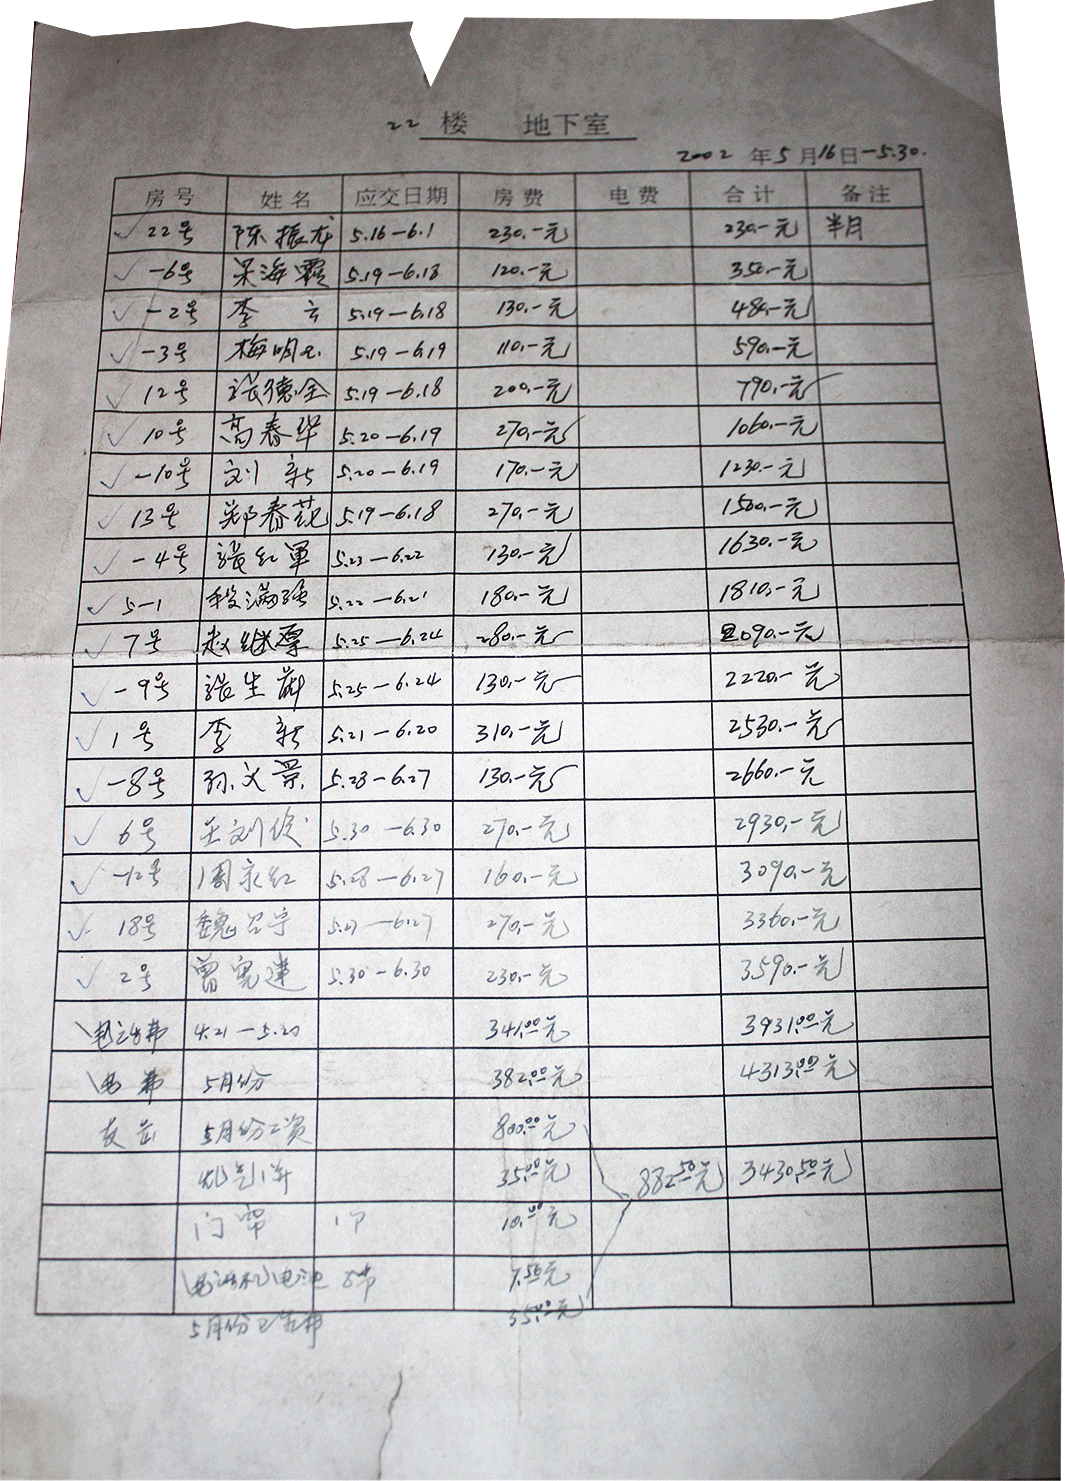 22 楼 地下室
2002 年 5 月 16 日 -5.30.
房号 姓名 应交日期 房费 电费 合计 备注
✓ 22号 陈振龙 5.16-6.1 230.-元 230.-元 半月
✓ -6号 梁海霞 5.19-6.18 120.-元 350.-元
✓ -2号 李云 5.19-6.18 130.-元 480.-元
✓ -3号 梅明 5.19-6.19 110.-元 590.-元
✓ 12号 張德全 5.19-6.18 200.-元 790.-元
✓ 10号 高春华 5.20-6.19 270.-元 1060.-元
✓ -10号 刘新 5.20-6.19 170.-元 1230.-元
✓ 13号 郑春花 5.19-6.18 270.-元 1500.-元
✓ -4号 張红軍 5.23-6.22 130.-元 1630.-元
✓ 5-1 段满强 5.22-6.21 180.-元 1810.-元
✓ 7号 赵继 5.25-6.24 280.-元 2090.-元
✓ -9号 張生 5.25-6.24 130.-元 2220.-元
✓ 1号 李新 5.21-6.20 310.-元 2530.-元
✓ -8号 孙义景 5.28-6.27 130.-元 2660.-元
✓ 6号 王刘俊 5.30-6.30 270.-元 2930.-元
✓ -12号 周永红 5.28-6.27 160.-元 3090.-元
✓ 18号 魏 宇 5.27-6.27 270.-元 3360.-元
✓ 2号 曾宪莲 5.30-6.30 230.-元 3590.-元
电话费 4.21-5.20 341.00元 3931.00元
电费 5月份 382.00元 4313.00元
5月份工资 800.00元
35.00元 882.50元 3430.50元
门帘 1个 10.00元
电话机电池 5节 7.50元
5月份卫生费 35.00元